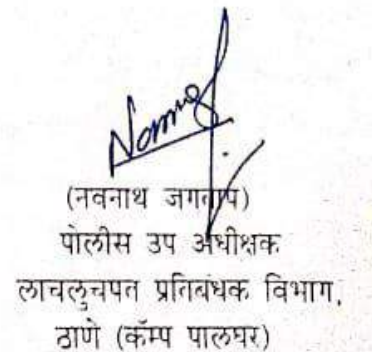 (नवनाथ जगताप)
पोलीस उप अधीक्षक
लाचलुचपत प्रतिबंधक विभाग,
ठाणे (कॅम्प पालघर)